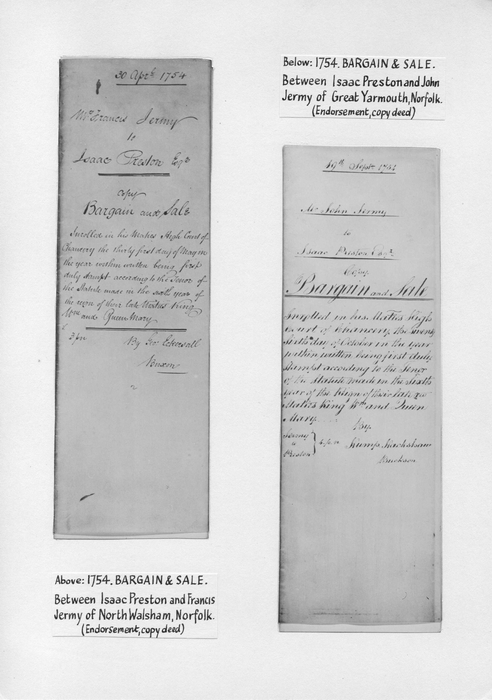 30 Apr. 1754
Mr. Francis Jermy
to
Isaac Preston Esqr.
Copy
Bargain and Sale
Inrolled in his Maties High Court of
Chancery the thirty first day of May in
the year within written being first
duly stampt according to the Tenor of
the Statute made in the sixth year of
the reign of their late Maties King
Wm. and Queen Mary.
By
Above: 1754. BARGAIN & SALE.
Between Isaac Preston and Francis
Jermy of North Walsham, Norfolk.
(Endorsement, copy deed)
Below: 1754. BARGAIN & SALE.
Between Isaac Preston and John
Jermy of Great Yarmouth, Norfolk.
(Endorsement, copy deed)
Septr.
Mr. John Jermy
to
Isaac Preston Esqr.
Copy
Bargain and Sale
Inrolled in his Maties High
Court of Chancery the twenty
sixth day of October in the year
within written being first duly
stampt according to the tenor
of the Statute made in the sixth
year of the Reign of their late
Maties King Wm. and Queen
Mary
By
Jermy
to
Preston